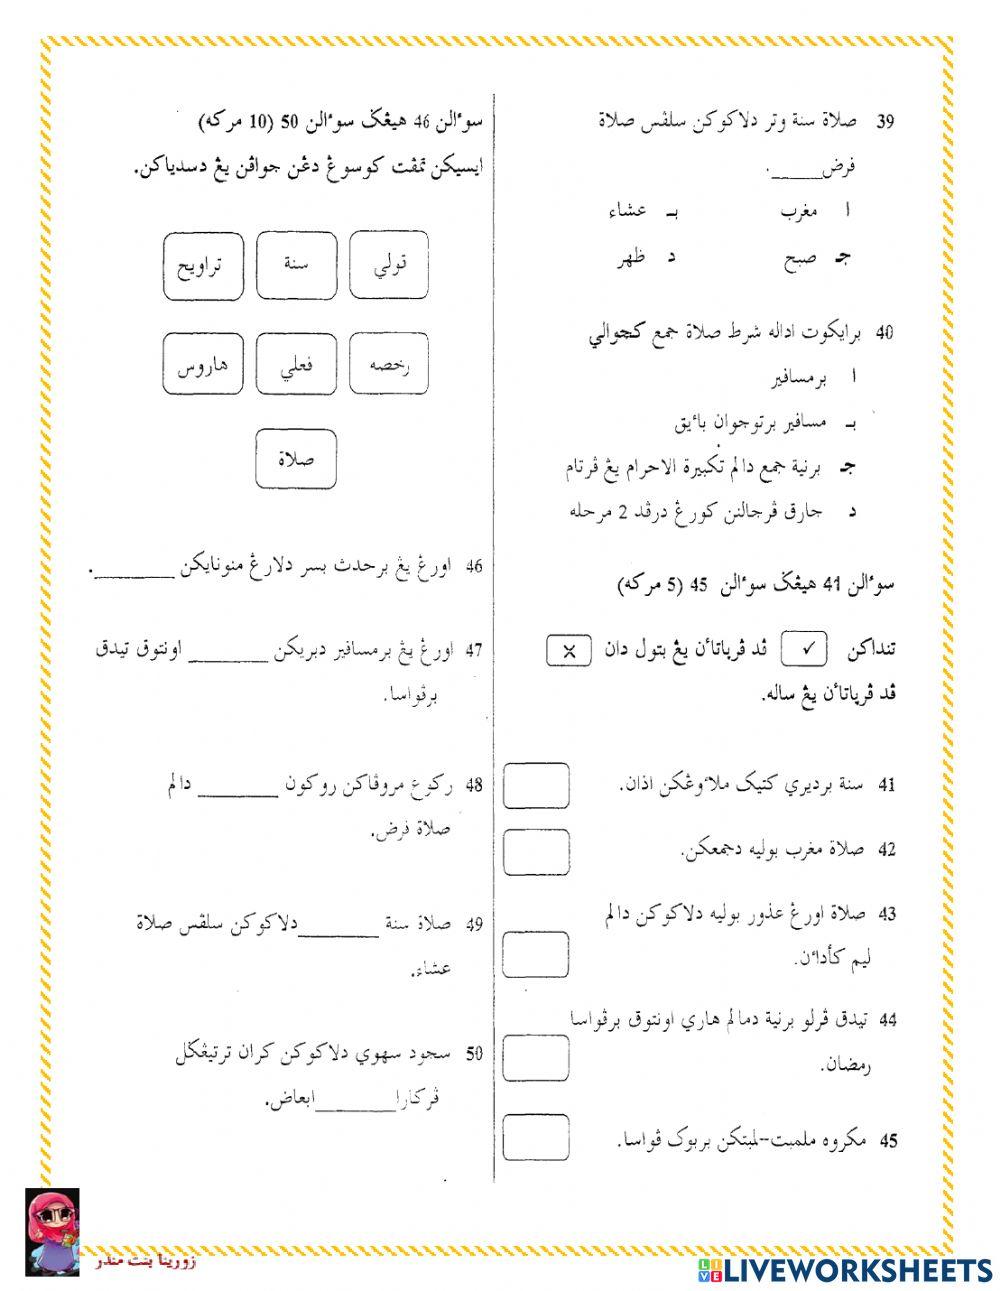 39 صلاة سنة وتر دلاكوكن سلڤس صلاة
فرض_____.
ا مغرب بـ عشاء
جـ صبح د ظهر
40 برايكوت اداله شرط صلاة جمع كچوالي
ا برمسافير
بـ مسافير برتوجوان باءيق
جـ برنية جمع دالم تكبيرة الاحرام يڠ ڤرتام
د جارق ڤرجالنن كورڠ درڤد 2 مرحله
سوءالن 41 هيڠݢ سوءالن 45 (5 مركه)
تنداكن ✓ ڤد ڤرڽاتاءن يڠ بتول دان x
ڤد ڤرڽاتاءن يڠ ساله.
41 سنة برديري كتيک ملاءوڠكن اذان.
42 صلاة مغرب بوليه دجمعكن.
43 صلاة اورڠ عذور بوليه دلاكوكن دالم
ليم كأداءن.
44 تيدق ڤرلو برنية دمالم هاري اونتوق برڤواسا
رمضان.
45 مكروه ملمبت–لمبتكن بربوک ڤواسا.
سوءالن 46 هيڠݢ سوءالن 50 (10 مركه)
ايسيكن تمڤت كوسوڠ دڠن جواڤن يڠ دسدياكن.
قولي سنة تراويح
رخصه فعلي هاروس
صلاة
46 اورڠ يڠ برحدث بسر دلارڠ منونايكن ________.
47 اورڠ يڠ برمسافير دبريكن ________ اونتوق تيدق
برڤواسا.
48 ركوع مروڤاكن روكون ________ دالم
صلاة فرض.
49 صلاة سنة ________دلاكوكن سلڤس صلاة
عشاء.
50 سجود سهوي دلاكوكن كران ترتيڠݢل
ڤركارا________ابعاض.
زورينا بنت مندر
LIVEWORKSHEETS